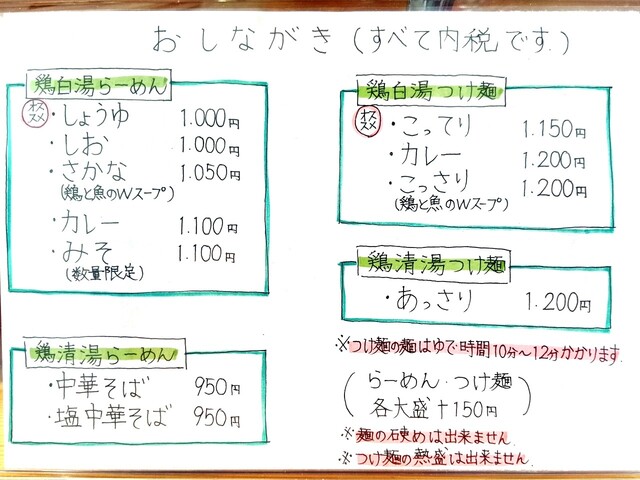 おしながき(すべて内税です.)
鶏白湯らーめん
オススメ
・しょうゆ 1.000円
・しお 1.000円
・さかな 1.050円
(鶏と魚のWスープ)
・カレー 1.100円
・みそ 1.100円
(数量限定)
鶏清湯らーめん
・中華そば 950円
・塩中華そば 950円
鶏白湯つけ麺
オススメ
・こってり 1.150円
・カレー 1.200円
・こっさり 1.200円
(鶏と魚のWスープ)
鶏清湯つけ麺
・あっさり 1.200円
※つけ麺の麺はゆで時間10分〜12分かかります.
(らーめん・つけ麺
各大盛+150円)
※麺の硬めは出来ません
※つけ麺の熱盛は出来ません